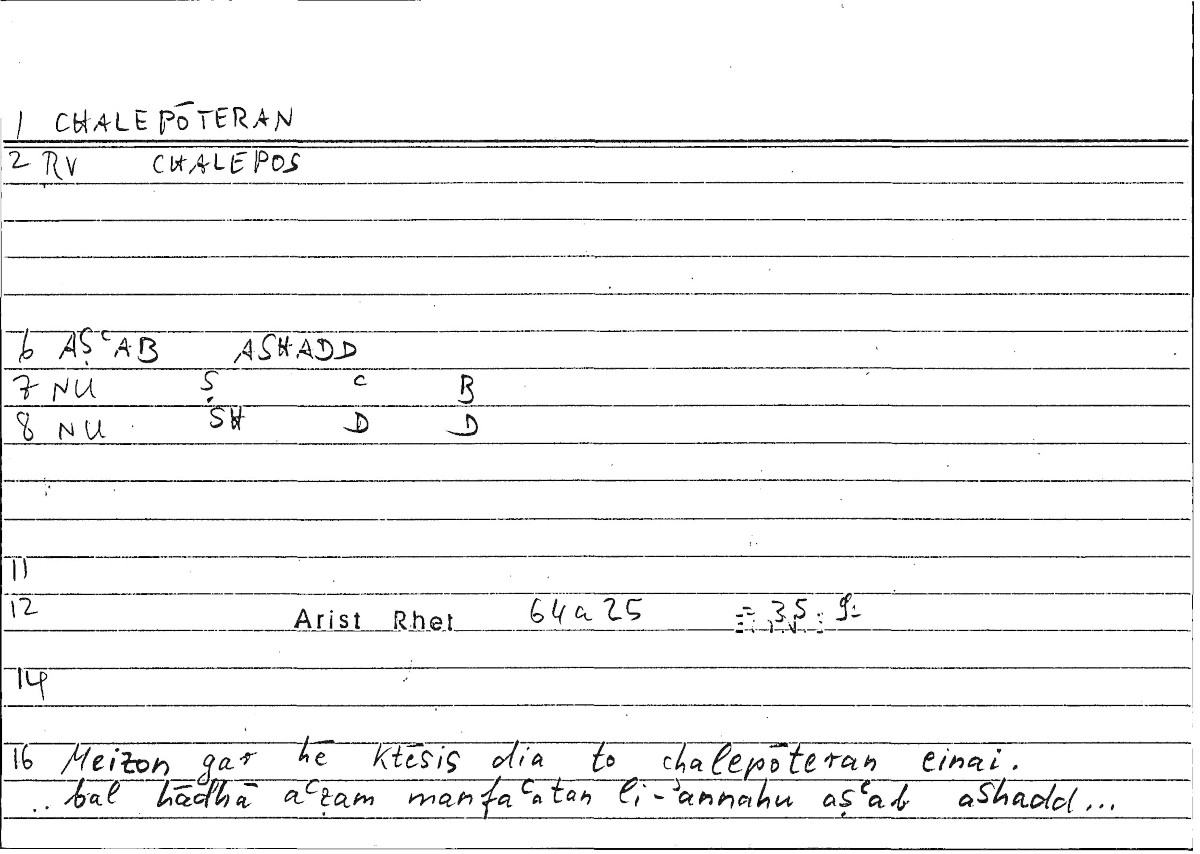 1 CHALEPŌTERAN
2 RV CHALEPOS
6 AṢʿAB ASHADD
7 NU Ṣ ʿ B
8 NU SH D D
11
12 Arist Rhet 64a25 = 35, 9
14
16 Meizon gar hē ktēsis dia to chalepōteran einai.
.. bal hādhā aʿẓam manfaʿatan li-ʾannahu aṣʿab ashadd...